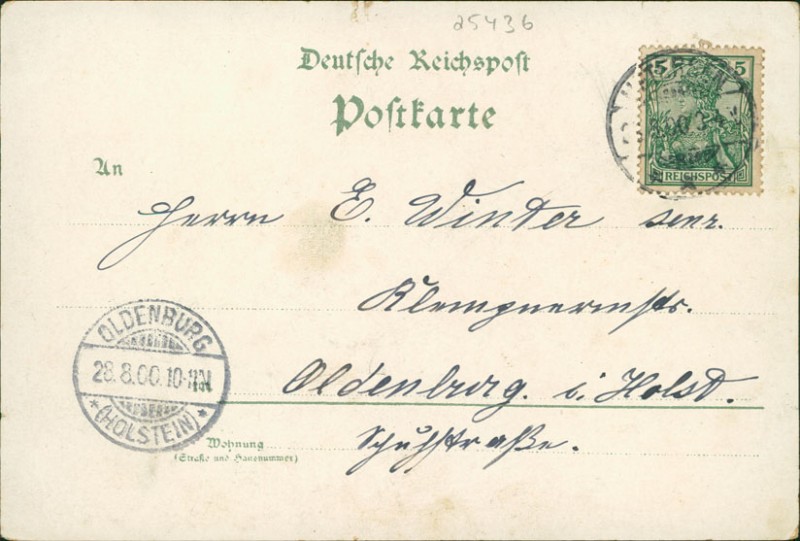 25436
Deutsche Reichspost
Postkarte
5 5
REICHSPOST
An
Herrn E. Winder senr.
Klempnermstr.
Oldenburg. i. Holst.
Schuhstraße.
OLDENBURG
28.8.00.10-11N
* (HOLSTEIN) *
Wohnung
(Straße und Hausnummer)